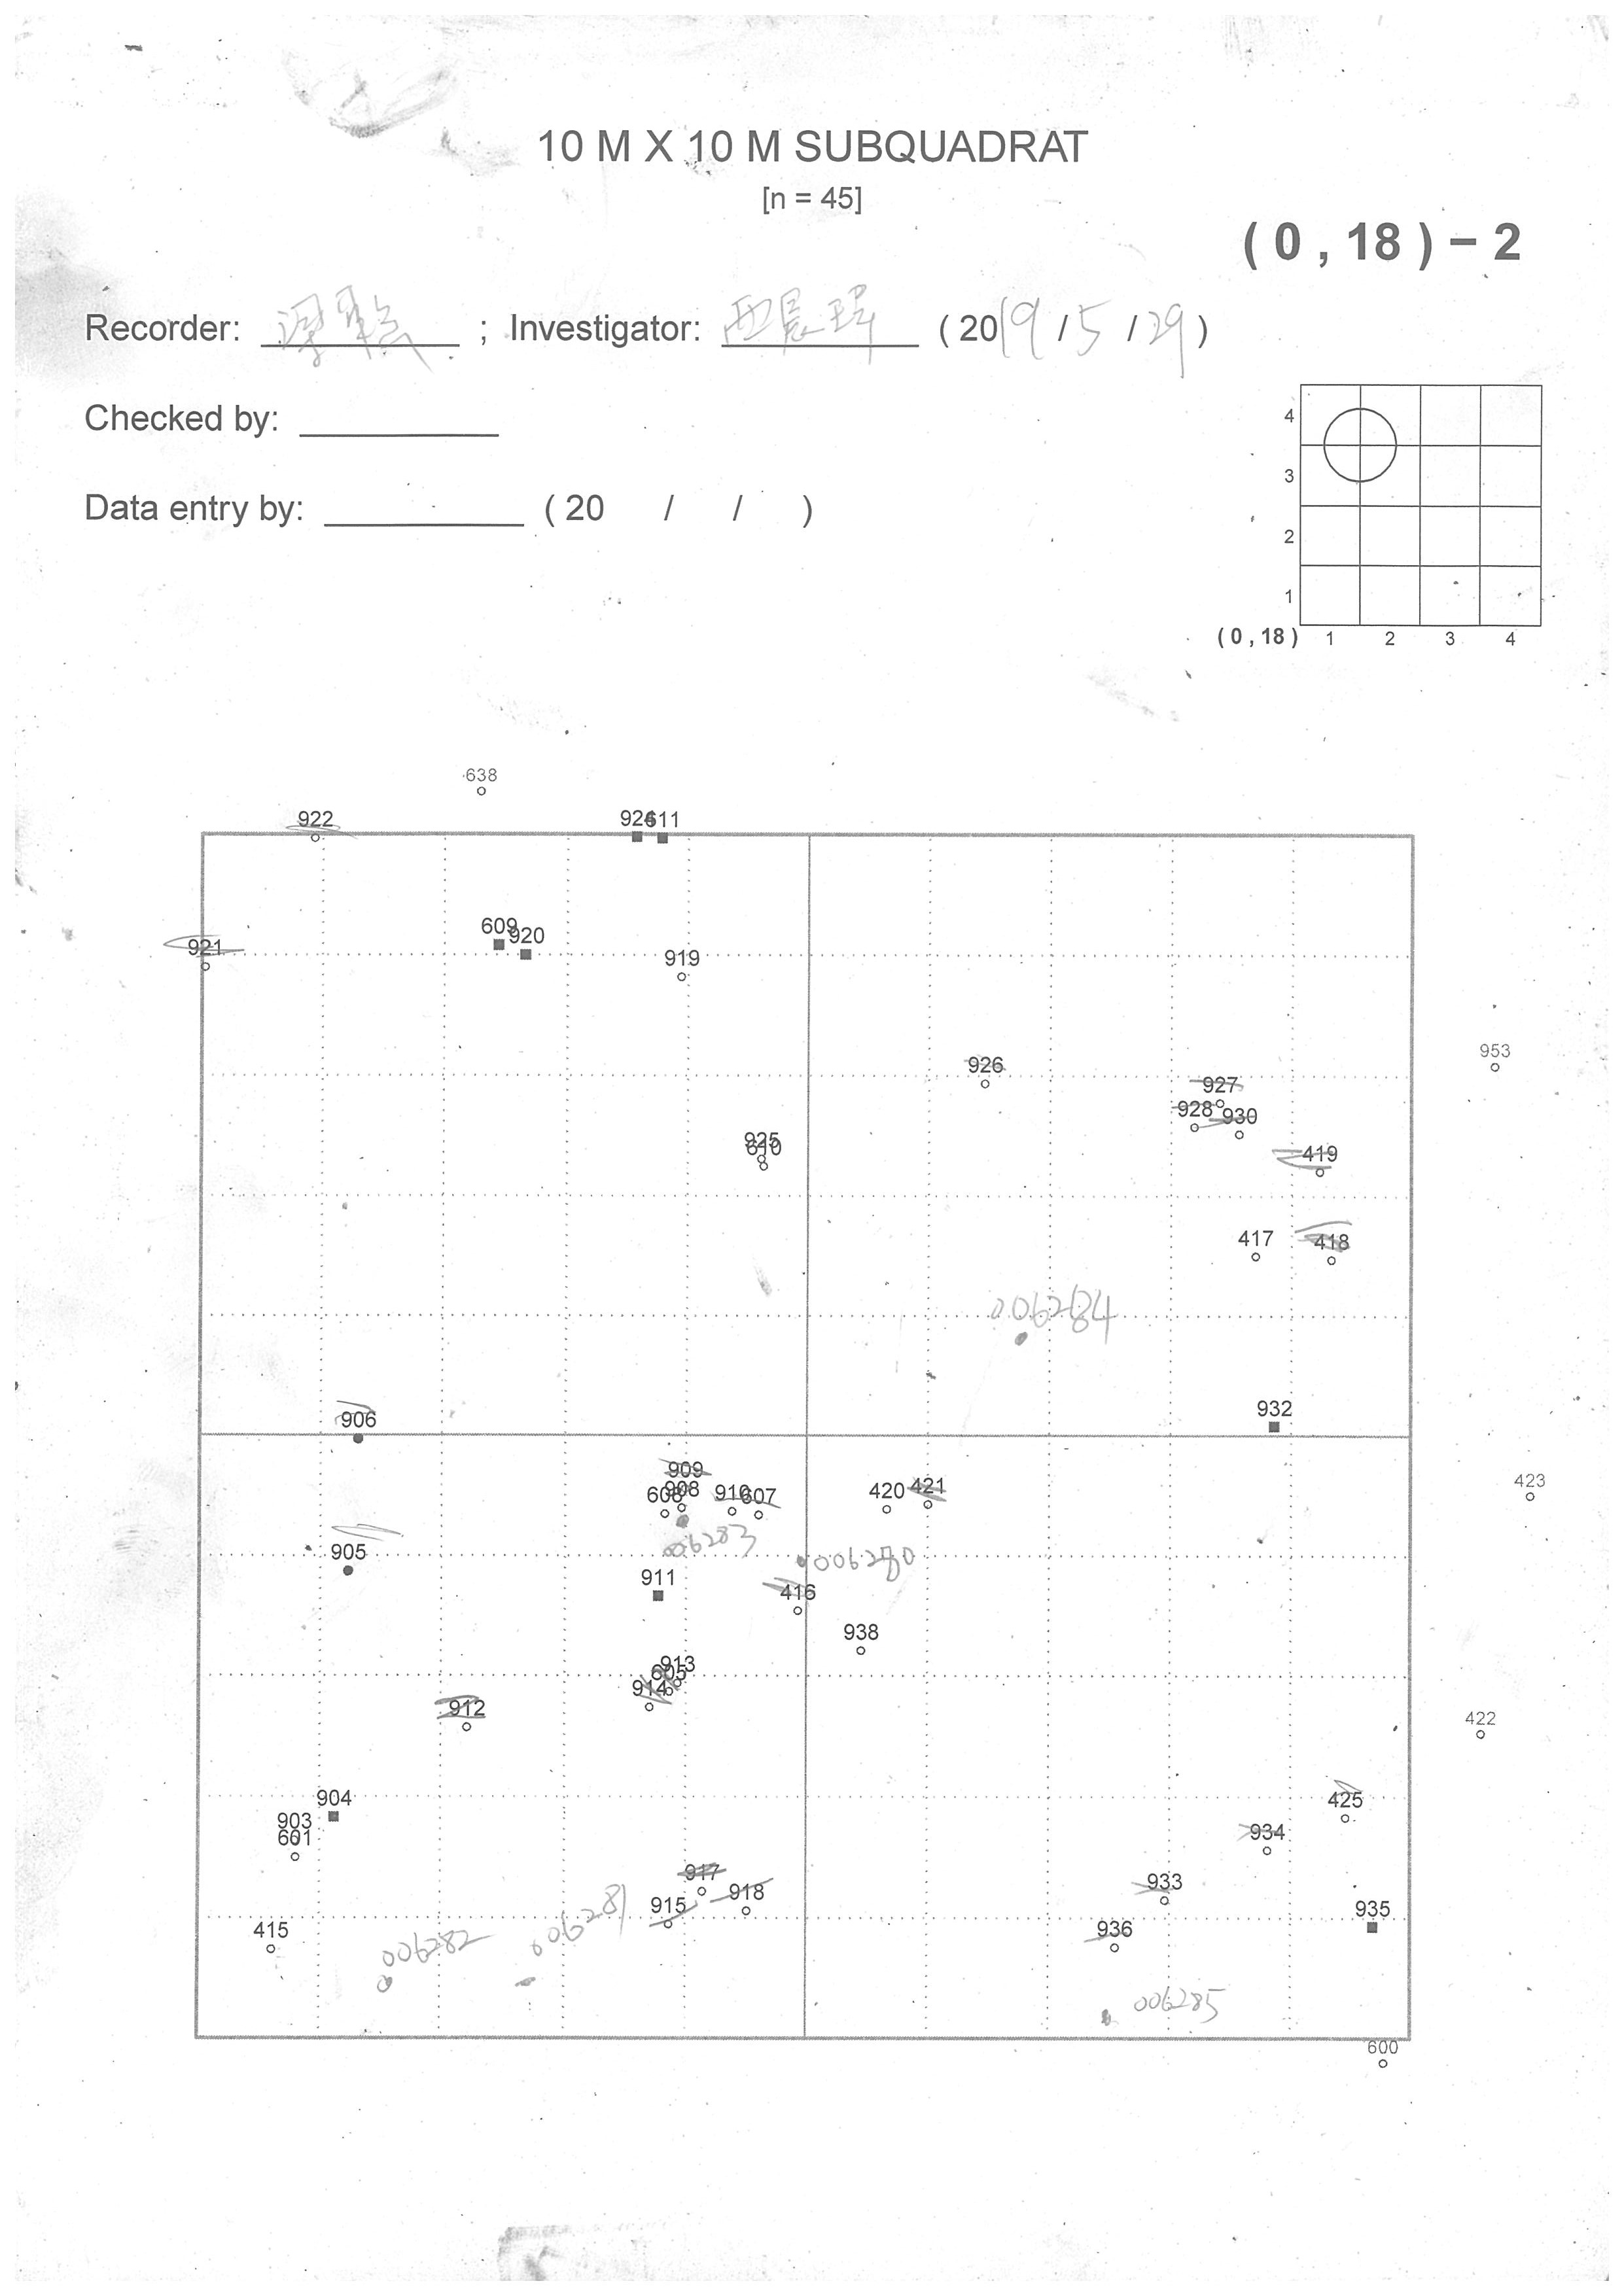 10 M X 10 M SUBQUADRAT
[n = 45]
( 0 , 18 ) – 2
Recorder: ; Investigator: ( 2019 / 5 / 29 )
Checked by:
Data entry by: ( 20 / / )
4
3
2
1
( 0 , 18 ) 1 2 3 4
638
922 924 611
609
921 920
919
926 953
927
928 930
925
610 419
417 418
006284
906 932
909
608 908 910 607 420 421 423
006283
905 006280
911 416
938
913
605
914
912 422
904 425
903
601 934
917 933
915 918 935
415 936
006282 006281
006285
600